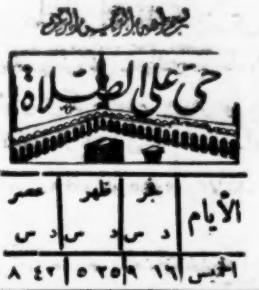 بسم الله الرحمن الرحيم
حي على الصلاة
الأيام فجر ظهر عصر
د س د س د س
الخميس ١٦ ٩ ٢٥ ٥ ٤٢ ٨